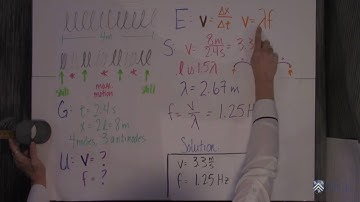 4m
still
max motion
still
G: t = 2.4s
x = 2l = 8m
4 nodes, 3 antinodes
U: v = ?
f = ?
E: v = Δx/Δt v = λf
S: v = 8m/2.4s = 3.3
l is 1.5λ
λ = 2.67m
f = v/λ = 1.25 Hz
Solution
v = 3.3 m/s
f = 1.25 Hz